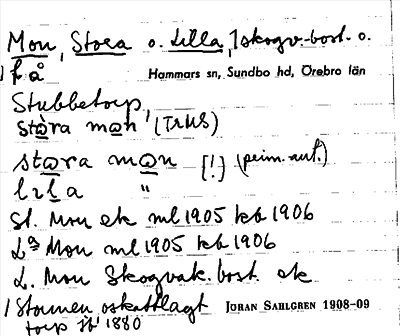 Mon, Stora o. Lilla, skogv.-bost. o.
få Hammars sn, Sundbo hd, Örebro län
Stubbetorp,
stòra mon
stora mon [!] (prim. ant.)
lila "
St. Mon ek ml 1905 kb 1906
La Mon ml 1905 kb 1906
L. Mon Skogvak. bost. ek
Stormen oskattlagt JÖRAN SAHLGREN 1908-09
torp jb 1880